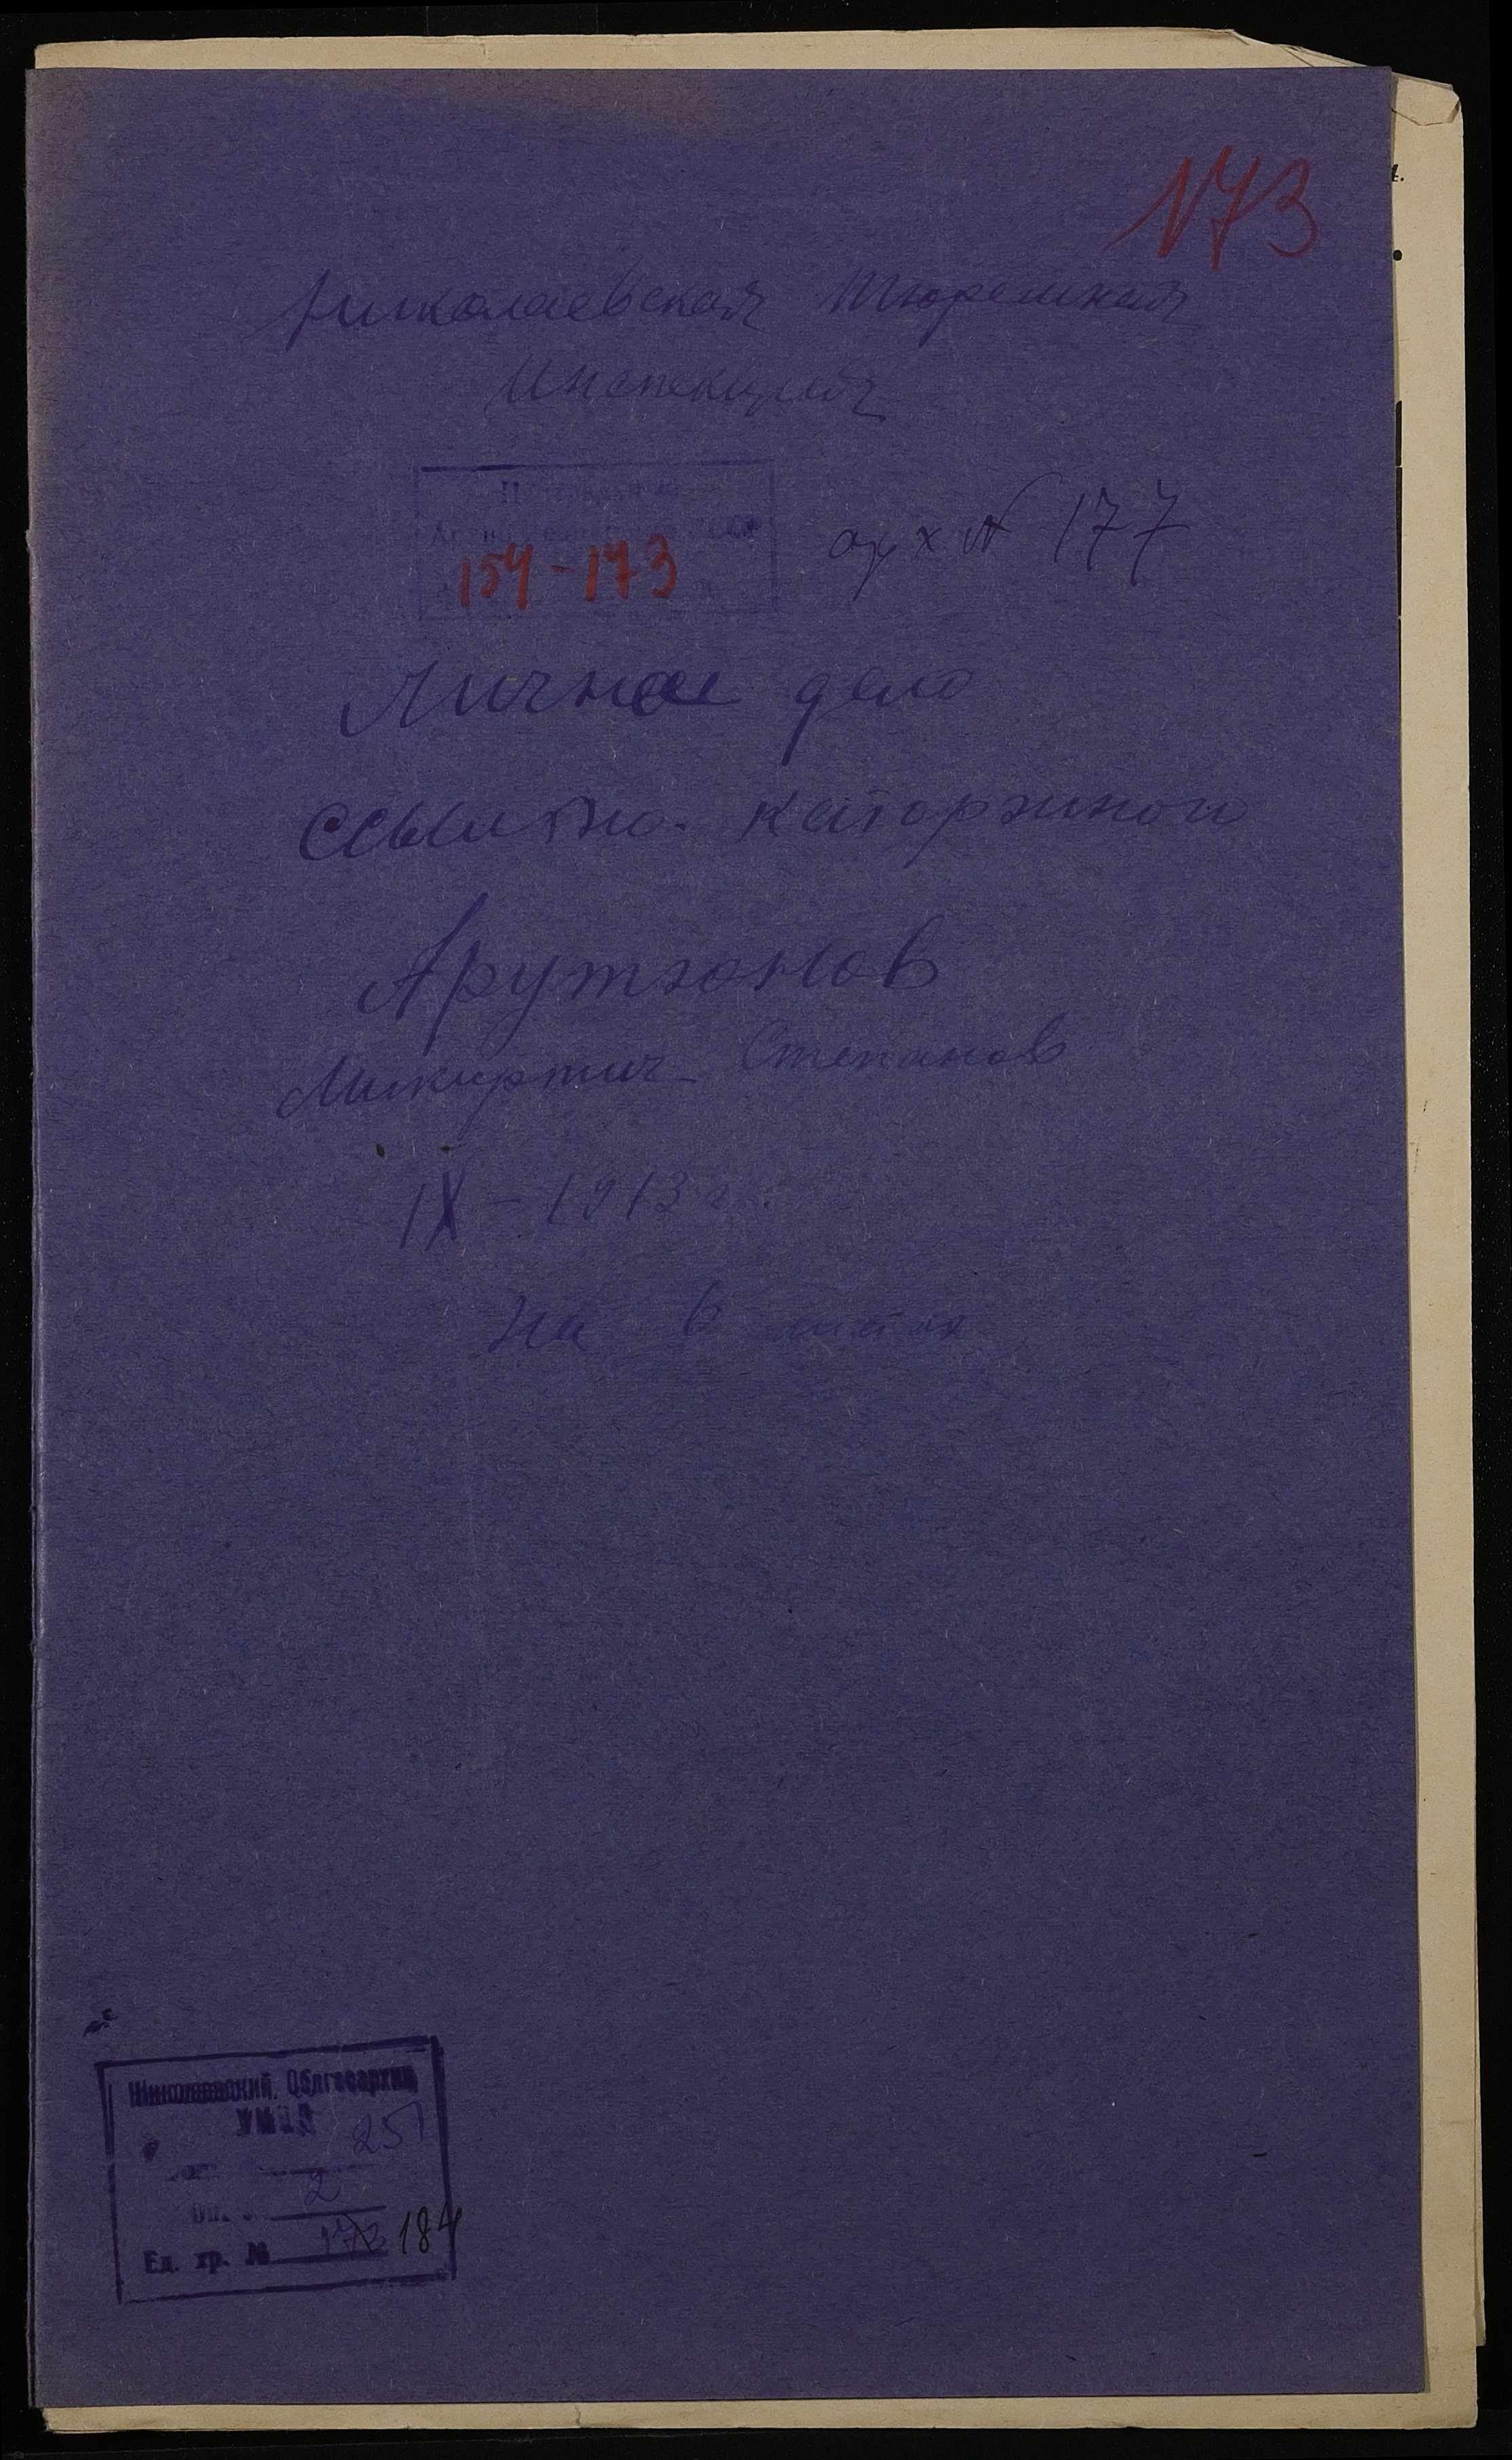 173
Николаевская тюремная
Инспекция
154-173
арх № 177
Личное дело
ссыльно-каторжного
Арутюнов
Микиртич Степанов
IX - 1913 г.
на 6 листах
Николаевский Облгосархив
УМВД
251
2
Оп.
Ед. хр. № 173 184